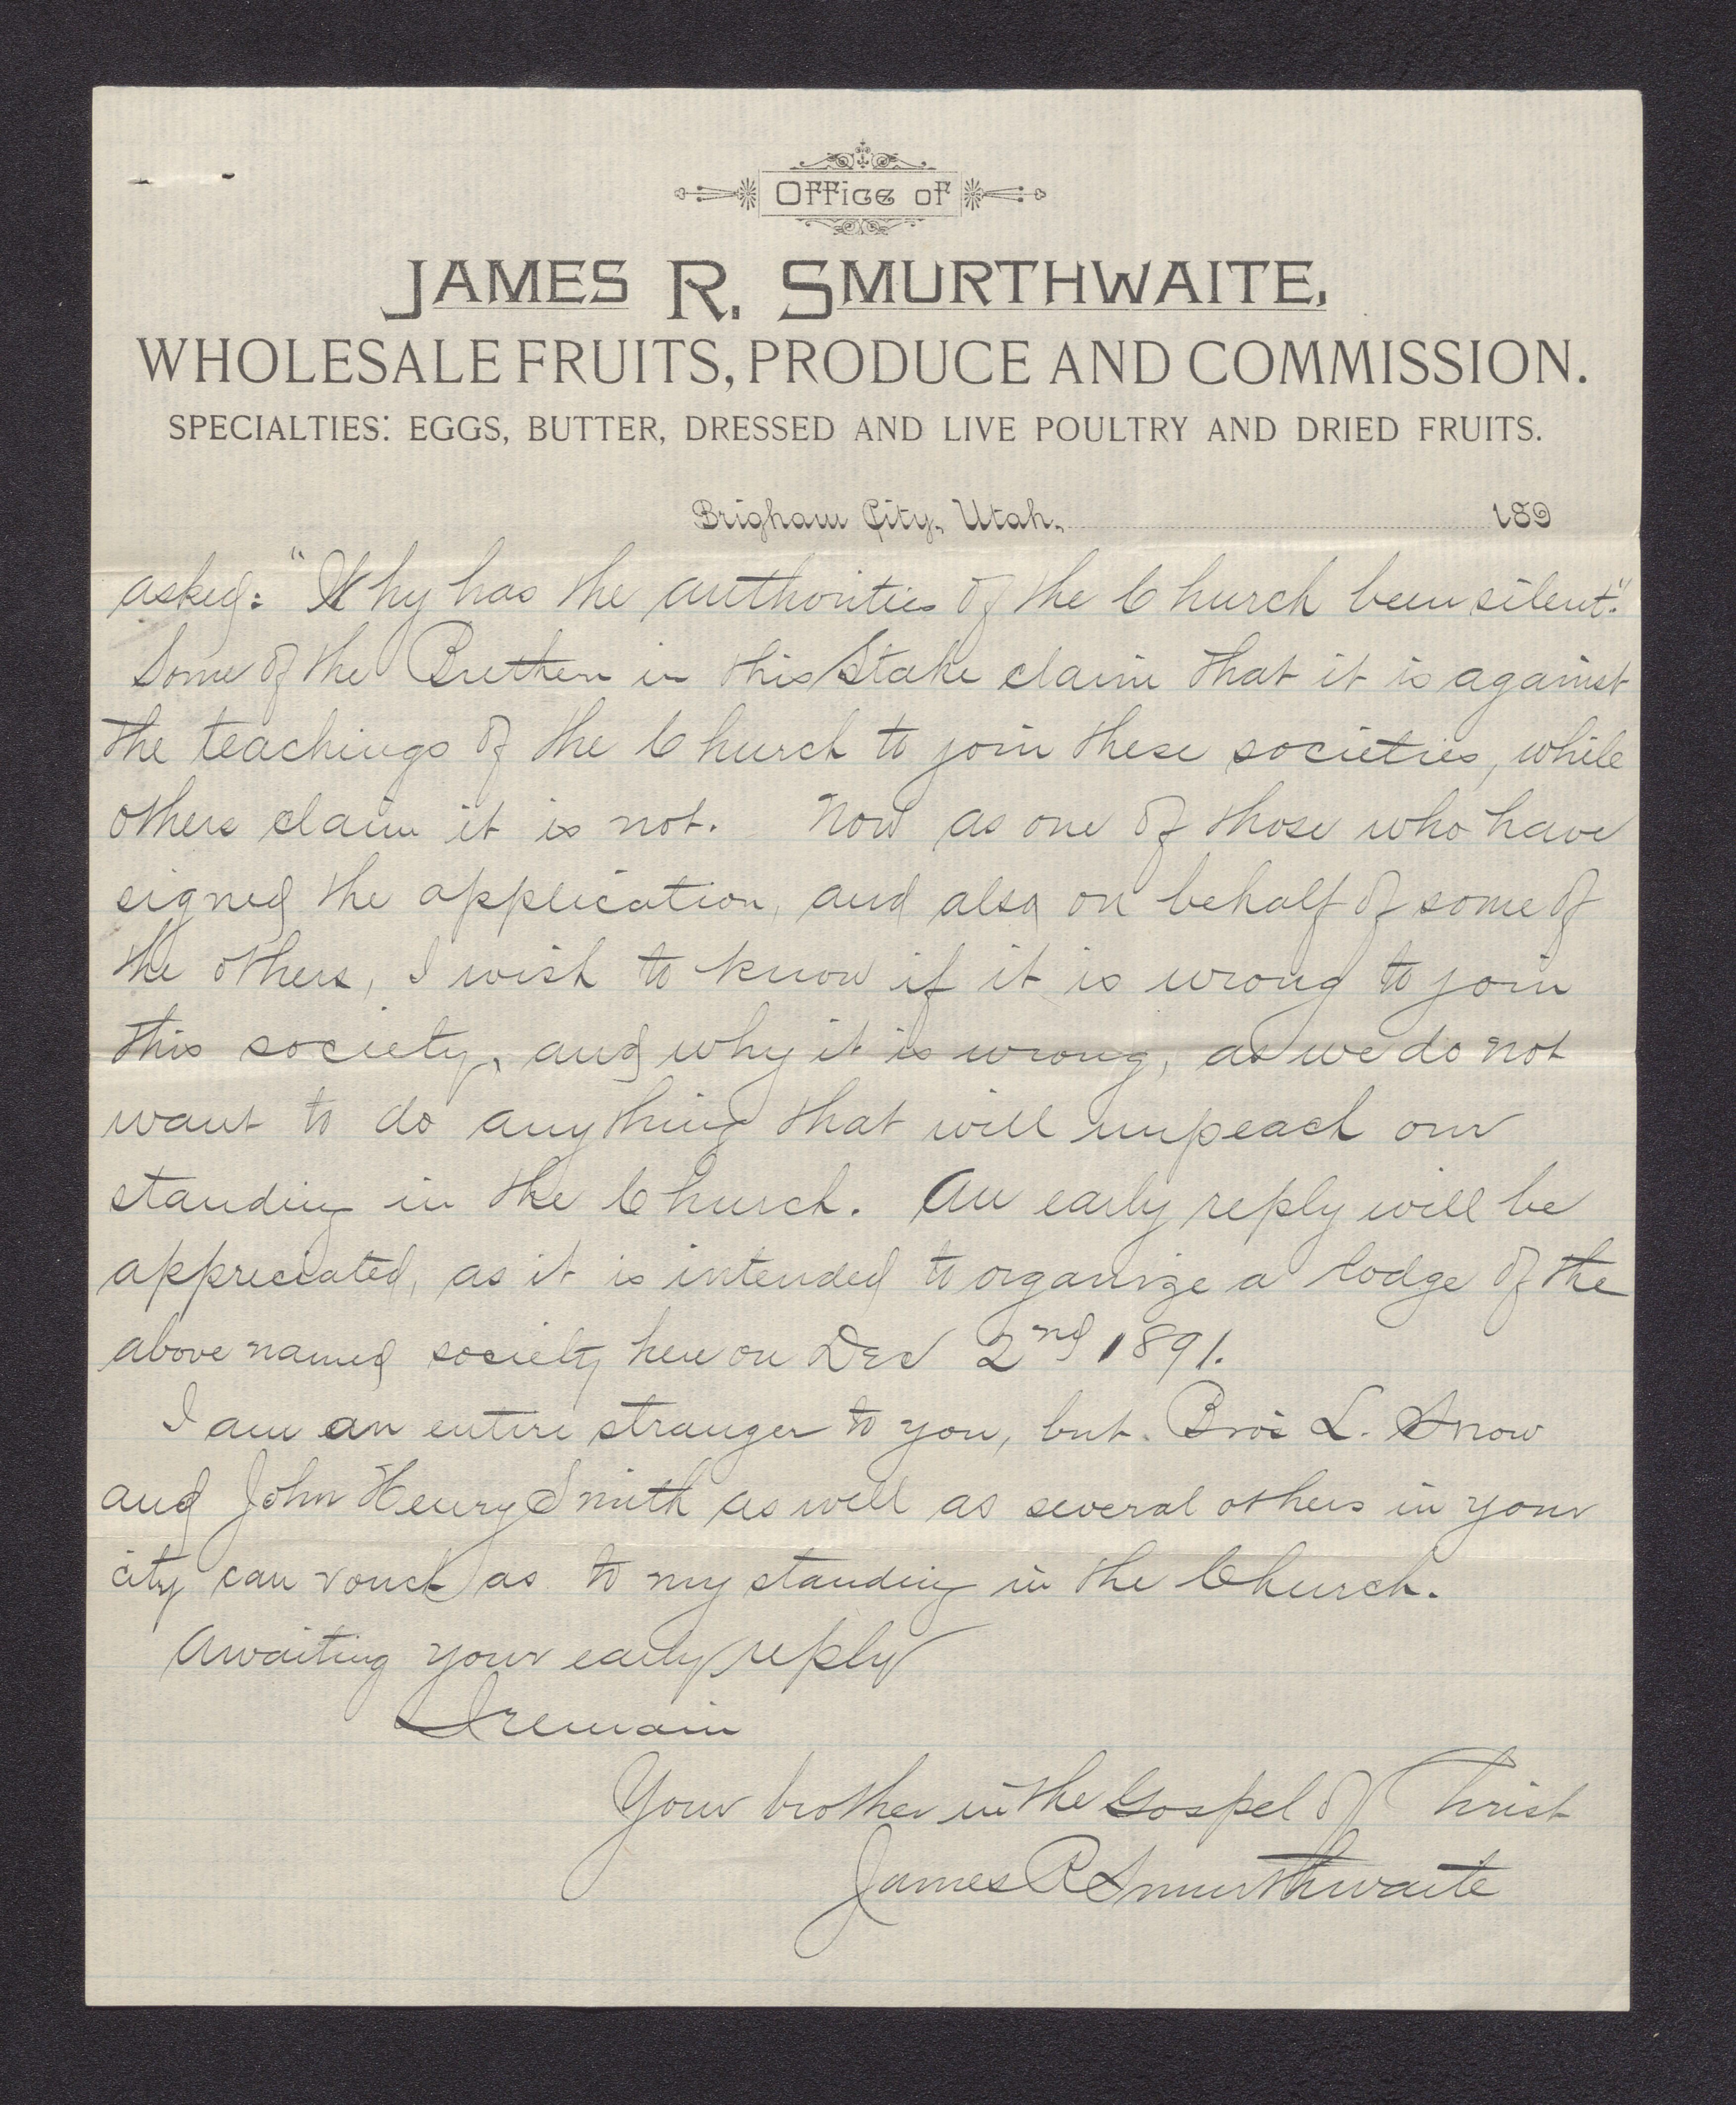 Office of
JAMES R. SMURTHWAITE,
WHOLESALE FRUITS, PRODUCE AND COMMISSION.
SPECIALTIES: EGGS, BUTTER, DRESSED AND LIVE POULTRY AND DRIED FRUITS.
Brigham City, Utah, 189
asked: "Why has the authorities of the Church been silent."
Some of the Brethern in this Stake claim that it is against
the teachings of the Church to join these societies, while
others claim it is not. Now as one of those who have
signed the application, and also on behalf of some of
the others, I wish to know if it is wrong to join
this society, and why it is wrong, as we do not
want to do anything that will impeach our
standing in the Church. An early reply will be
appreciated, as it is intended to organize a lodge of the
above named society here on Dec 2nd 1891.
I am an entire stranger to you, but Bros L. Snow
and John Henry Smith as well as several others in your
city can vouch as to my standing in the Church.
Awaiting your early reply
I remain
Your brother in the Gospel of Christ
James R Smurthwaite